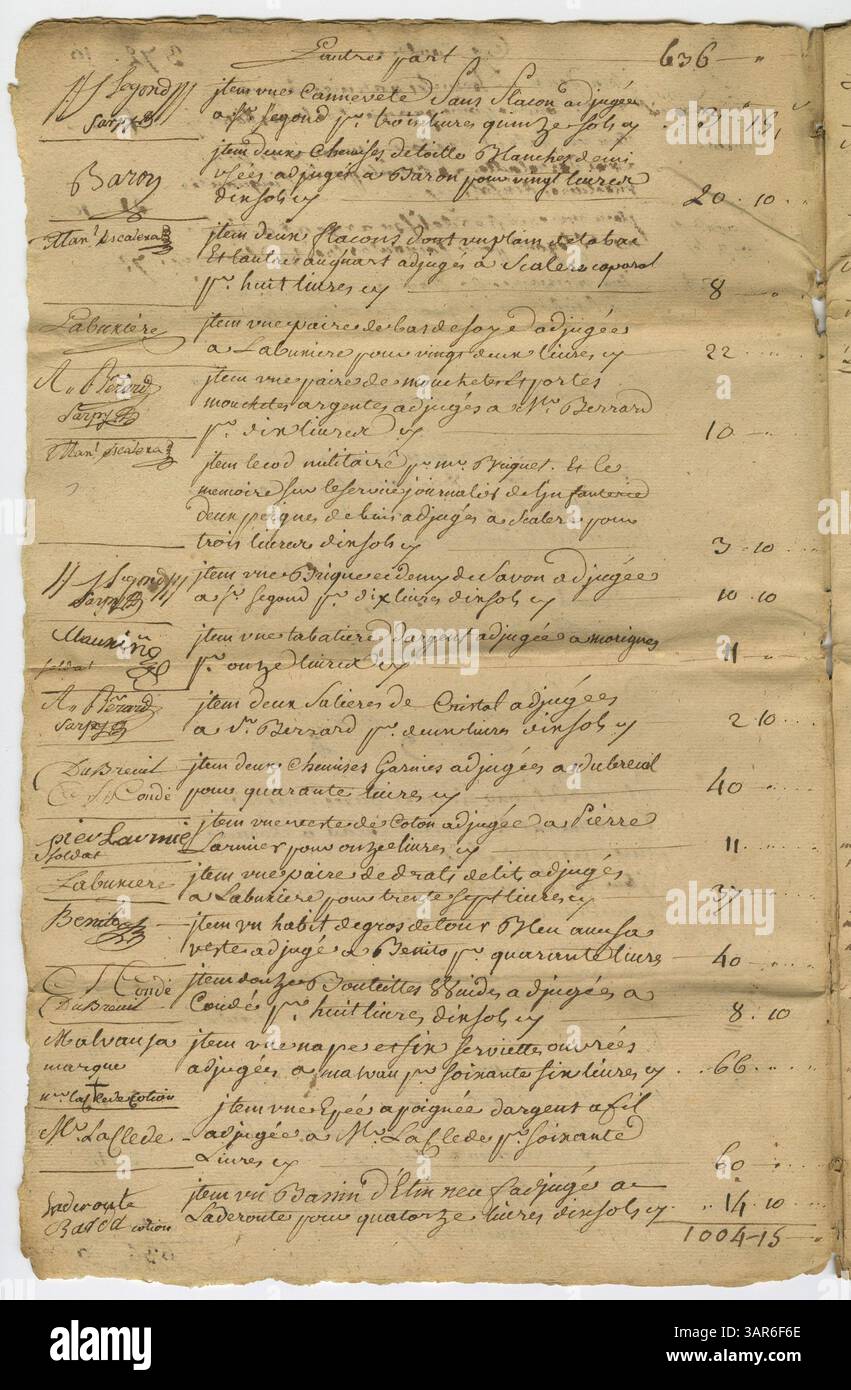 L'autre part 636 — " —
Segond
Sarpy
jtem une Cannevete Sans flacon adjugée
a Sr. Segond pr. trois livres quinze sols cy 3 " 15
Baron
jtem deux Chemises de toille Blanches demi
usées adjugés a Baron pour vingt livres
dix sols cy 20 . 10
Manl. Escalera
jtem deux flacons dont un plain de tabac
Et l'autre au quart adjugés a Scalera caporal
pr. huit livres cy 8 — "
Labuxiere
jtem une paire de bas de soye adjugée
a Labuxiere pour vingt deux livres cy 22
A. Bérard
Sarpy
jtem une paire de mouchetes Et portes
mouchetes argentés adjugés a Mr. Berrard
pr. dix livres cy 10 — "
Manl. Escalera
jtem le cod militaire pr. mr. Briquet. Et le
memoire sur le service journalier de l'jnfanterie
deux peignes de buis adjugés a Scalera pour
trois livres dix sols cy 3 . 10
Segond
Sarpy
jtem une Brique et demy de Savon adjugée
a Sr. Segond pr. dix livres dix sols cy 10 . 10
soldat
jtem une tabatiere d'argent adjugée a morignes
pr. onze livres cy 11 "
A. Bérard
Sarpy
jtem deux Salieres de Cristal adjugées
a Sr. Berrard pr. deux livres dix sols cy 2 10
DuBreuil
Condé
jtem deux Chemises Garnies adjugées a dubreuil
pour quarante livres cy 40
pier Larmie
soldat
jtem une veste de Coton adjugée a Pierre
Larmier pour onze livres cy 11
Labuxiere
jtem une paire de drats de lit adjugés
a Labuxiere pour trente sept livres cy 37
Benito
jtem un habit de gros de tour Bleu avec sa
veste adjugé a Benito pr. quarante livres 40
Condé
DuBreuil
jtem douze Bouteilles Wuides adjugées a
Condé pr. huit livres dix sols cy 8 . 10
Malvan sa
marque
+
mr. laclede cotion
jtem une nape et six serviettes ouvrées
adjugées a malvan pr. soixante six livres cy 66
Mr. Laclede
jtem une Epée a poignée d'argent a fil
adjugée a Mr. Laclede pr. soixante
livres cy 60
Laderoute
cotion
jtem un Bassin d'Etin neuf adjugé a
Laderoute pour quatorze livres dix sols cy 14 . 10
1004 - 15